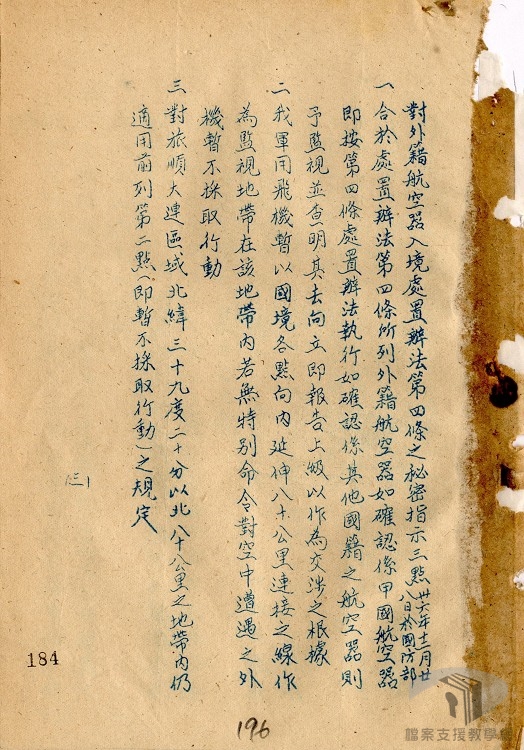 對外籍航空器入境處置辦法第四條之秘密指示三點 卅六年十二月廿
八日於國防部
一 合於處置辦法第四條所列外籍航空器如確認係甲國航空器
即按第四條處置辦法執行如確認係其他國籍之航空器則
予監視並查明其去向立即報告上級以作為交涉之根據
二 我軍用飛機暫以國境各點向內延伸八十公里連接之線作
為監視地帶在該地帶內若無特別命令對空中遭遇之外
機暫不採取行動
三 對旅順大連區域北緯三十九度二十分以北八十公里之地帶內仍
適用前列第二點(即暫不採取行動)之規定
(三)
184
196
檔案支援教學網